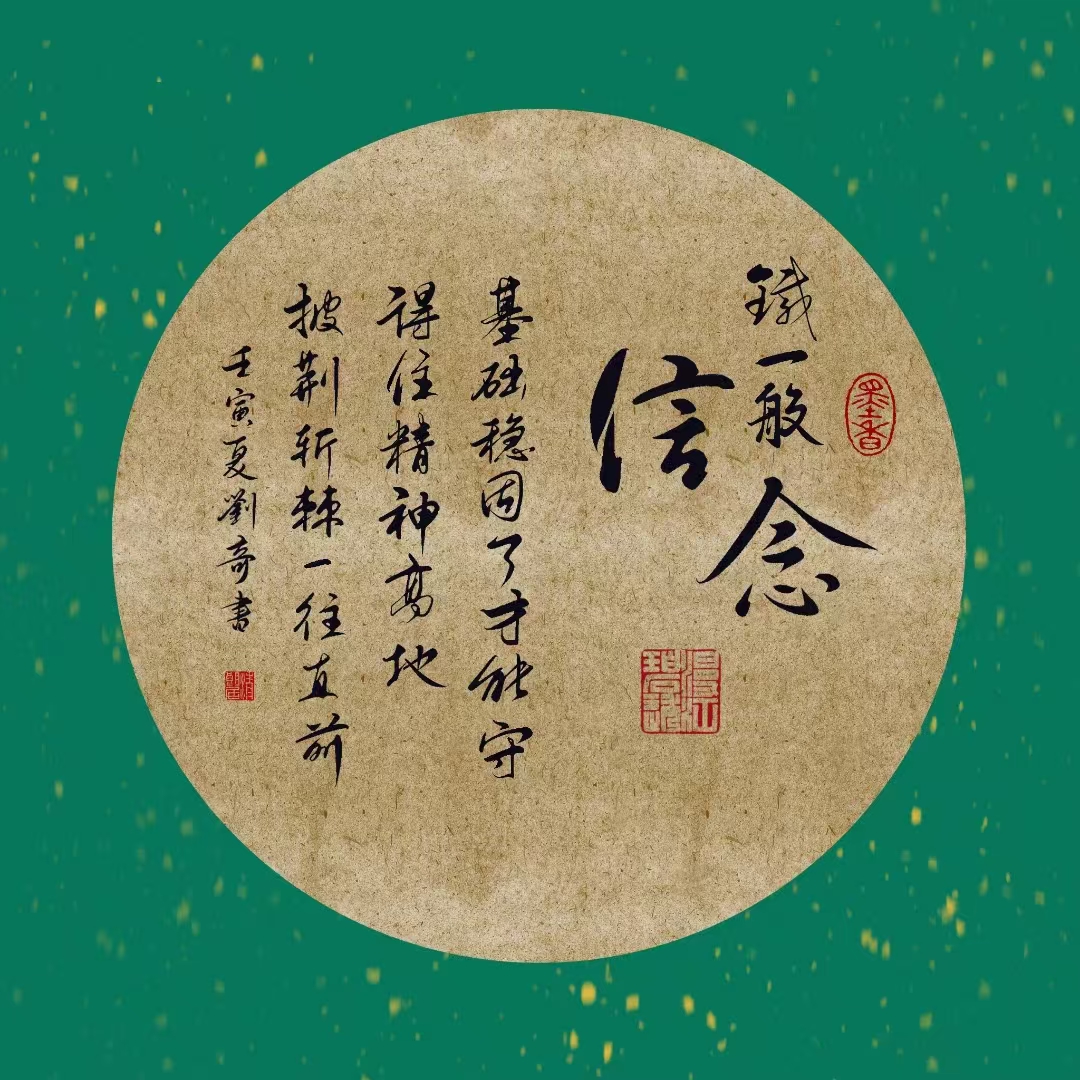 墨香
鐵一般
信念
基础稳固了才能守
得住精神高地
披荆斩棘一往直前
壬寅夏劉奇書